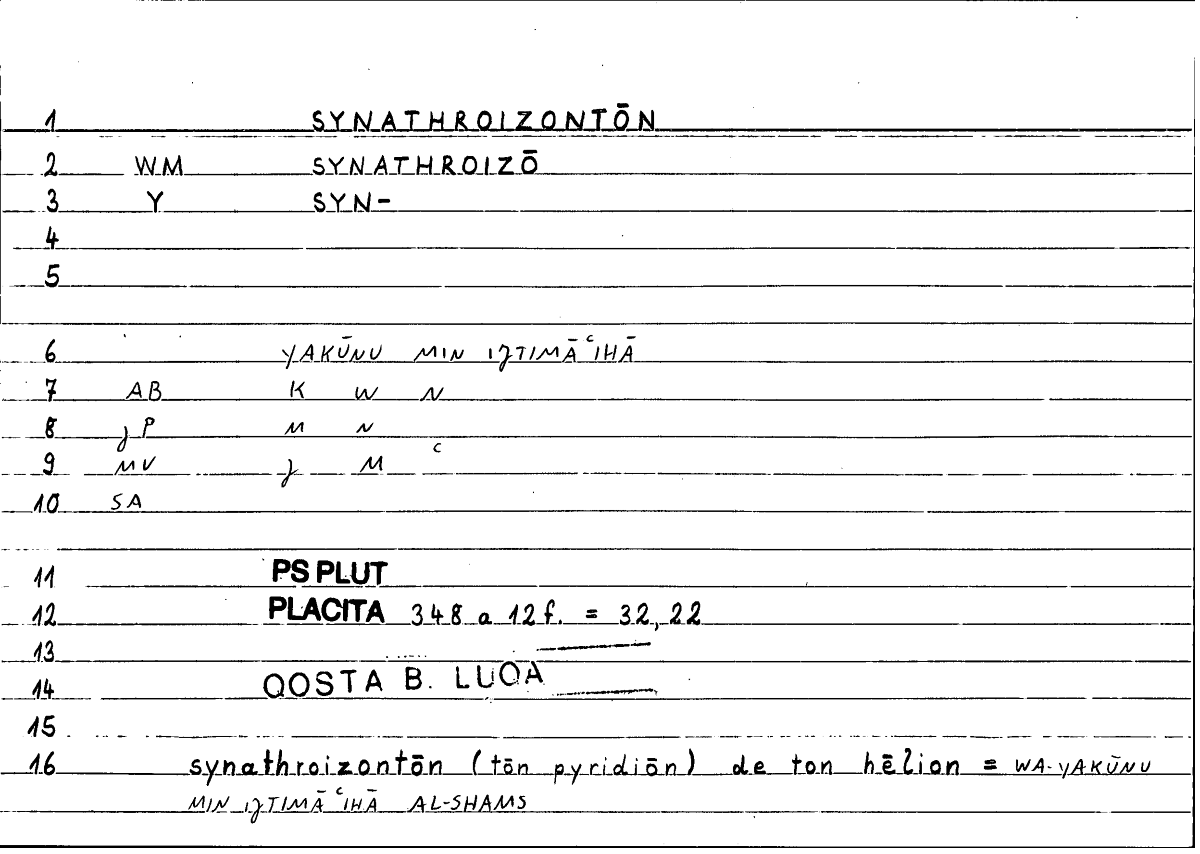 1 SYNATHROIZONTŌN
2 WM SYNATHROIZŌ
3 Y SYN-
4
5
6 YAKŪNU MIN IJTIMĀʿIHĀ
7 AB K W N
8 JP M N
9 MV J M ʿ
10 SA
11 PS PLUT
12 PLACITA 348 a 12 f. = 32, 22
13
14 QOSTA B. LUQA
15
16 synathroizontōn (tōn pyridiōn) de ton hēlion = WA-YAKŪNU
MIN IJTIMĀʿIHĀ AL-SHAMS